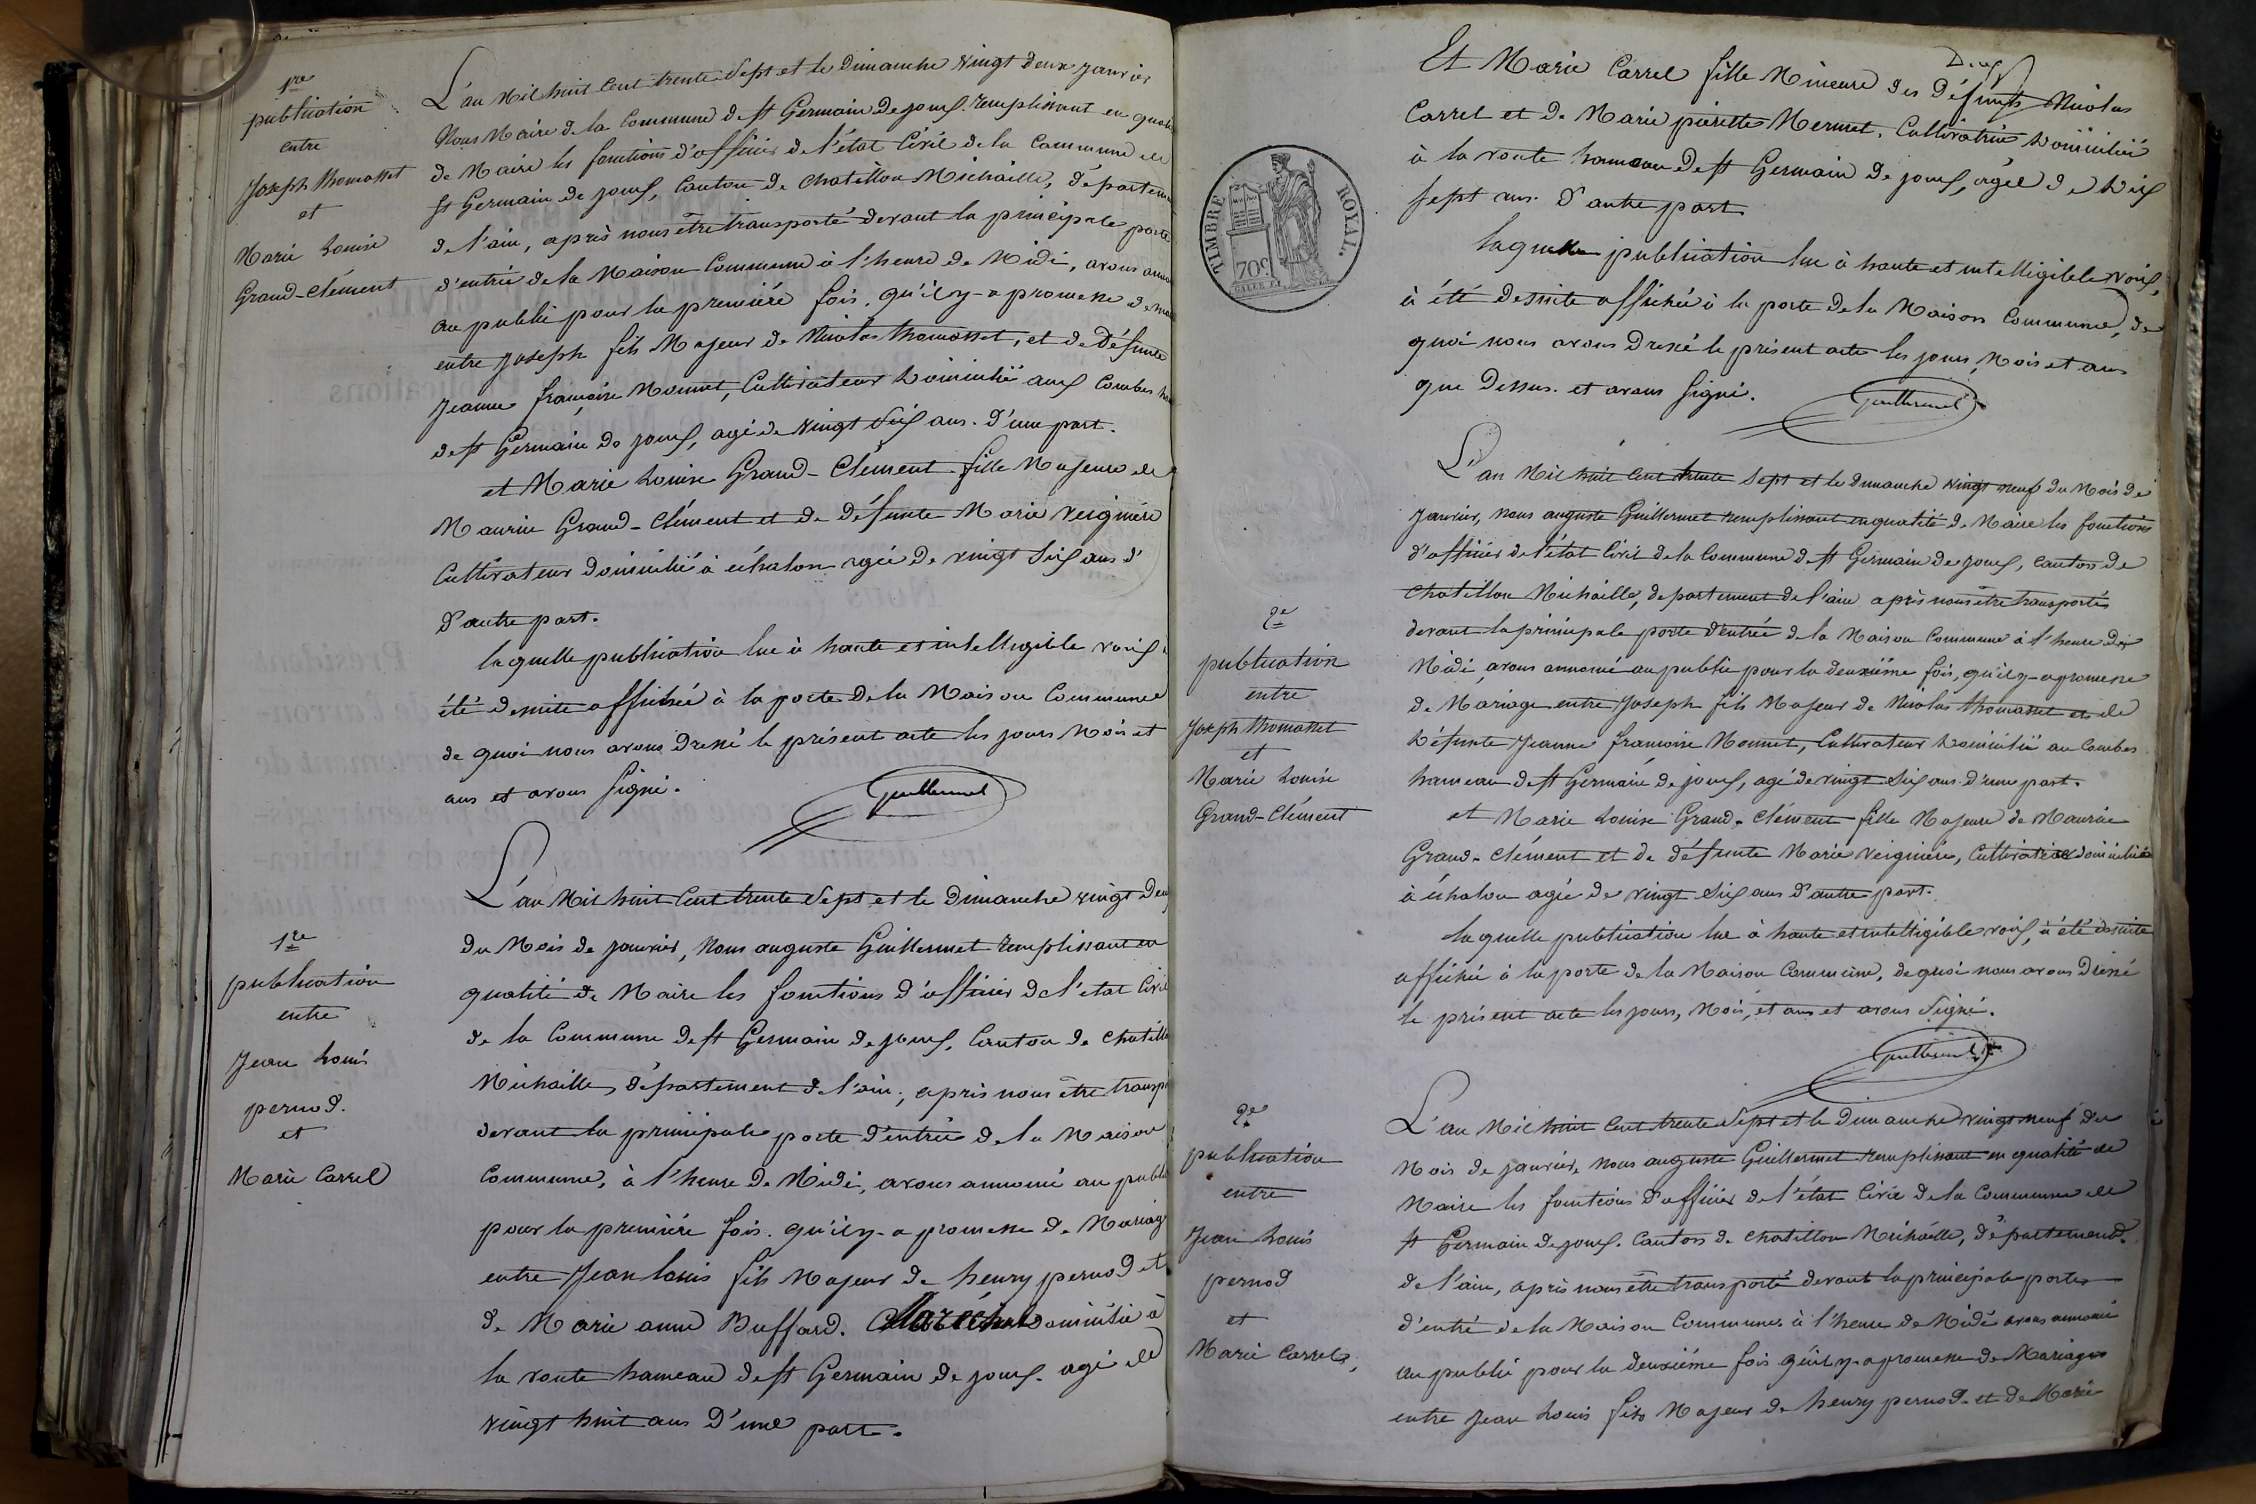 1re
publication
entre
Joseph Thomasset
et
Marie Louise
Grand-Clément
L'an Mil huit Cent trente Sept et le Dimanche vingt deux janvier
Nous Maire de la Commune de st Germain de joux remplissant en qualité
de Maire les fonctions d'officier de l'état Civil de la Commune de
st Germain de joux, Canton de Chatillon Michaille, département
de l'ain, après nous être transporté devant la principale porte
d'entrée de la Maison Commune à l'heure de Midi, avons annoncé
au public pour la première fois, qu'il y-a promesse de
entre joseph fils Majeur de Nicolas thomasset, et de Défunte
Jeanne françoise Monnet, Cultivateur Domicilié aux Combes
de st Germain de joux, agé de vingt Six ans. D'une part.
et Marie Louise Grand-Clément fille Majeure de
Maurice Grand-Clément et de défunte Marie Veignière
Cultivateur domicilié à échalon agée de vingt Six ans d'
D'autre part.
laquelle publication lue à haute et intelligible voix à
été de suite affichée à la porte de la Maison Commune
de quoi nous avons Dressé le présent acte les jours Mois et
ans et avons Signé.
Guillermet
1re
publication
entre
Jean Louis
pernod.
et
Marie Carrel
L'an Mil huit Cent trente Sept et le Dimanche vingt deux
du Mois de janvier, Nous auguste Guillermet remplissant en
qualité de Maire les fonctions d'officier de l'état Civil
de la Commune de st Germain de joux, Canton de Chatillon
Michaille, département de l'ain, après nous être transporté
devant la principale porte d'entrée de la Maison
Commune, à l'heure de Midi, avons annoncé au public
pour la première fois. qu'il y-a promesse de Mariage
entre Jean louis fils Majeur de henry pernod et
de Marie anne Buffard. Maréchal Domicilié à
la voute hameau de st Germain de joux. agé de
vingt huit ans D'une part.
Et Marie Carrel fille Mineure des Défunts Nicolas
Carrel et de Marie pierette Mermet, Cultivatrice Domiciliée
à la voute hameau de st Germain de joux, agée de Dix
sept ans. D'autre part.
TIMBRE ROYAL.
70c
laquelle publication lue à haute et intelligible voix,
à été de suite affichée à la porte de la Maison Commune, de
quoi nous avons Dressé le présent acte les jours, Mois et ans
que Dessus. et avons Signé.
Guillermet
2e
publication
entre
Joseph Thomasset
et
Marie Louise
Grand-Clément
L'an Mil huit Cent trente Sept et le dimanche vingt neuf du Mois de
Janvier, nous auguste Guillermet remplissant en qualité de Maire les fonctions
d'officier de l'état Civil de la Commune de st Germain de joux, canton de
Chatillon Michaille, département de l'ain après nous être transportés
devant la principale porte d'entrée de la Maison Commune à l'heure de
Midi, avons annoncé au public pour la deuxième fois, qu'il y-a promesse
de Mariage entre Joseph fils Majeur de Nicolas thomasset et de
Défunte Jeanne francoise Monnet, Cultivateur Domicilié au Combes
hameau de st Germain de joux, agé de vingt Six ans. D'une part.
et Marie Louise Grand-Clément fille Majeure de Maurice
Grand-Clément et de défunte Marie Veignière, Cultivatrice domiciliée
à échalon agée de vingt Six ans D'autre part.
laquelle publication lue à haute et intelligible voix, à été de suite
affichée à la porte de la Maison Commune, de quoi nous avons Dressé
le présent acte les jours, Mois, et ans et avons Signé.
Guillermet
2e
publication
entre
Jean Louis
pernod
et
Marie Carrel
L'an Mil huit Cent trente Sept et le Dimanche vingt neuf du
Mois de janvier, Nous auguste Guillermet remplissant en qualité de
Maire les fonctions d'officier de l'état Civil de la Commune de
st Germain de joux. Canton de Chatillon Michaille, département
de l'ain, après nous être transporté devant la principale porte
d'entré de la Maison Commune à l'heure de Midi avons annoncé
au public pour la deuxième fois qu'il y-a promesse de Mariage
entre Jean Louis fils Majeur de henry pernod et de Marie